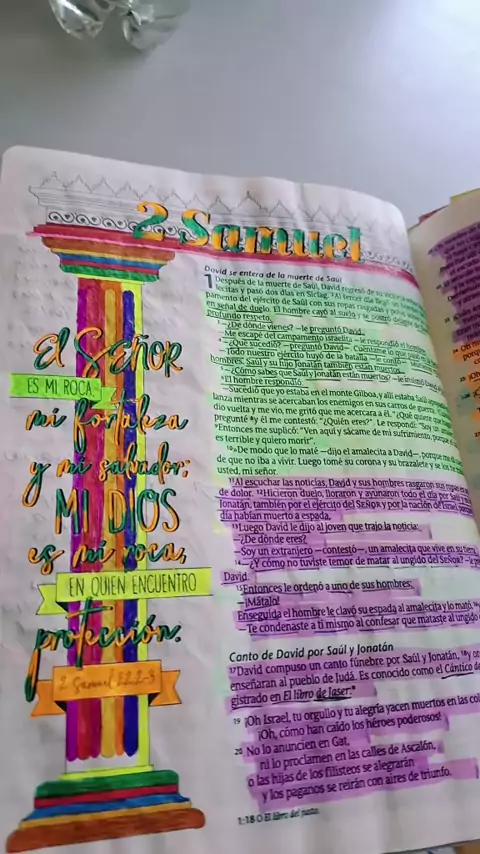 2 Samuel
El SEÑOR
ES MI ROCA,
mi fortaleza
y mi salvador;
MI DIOS
es mi roca,
EN QUIEN ENCUENTRO
protección.
2 Samuel 22:2-3
David se entera de la muerte de Saúl
1 Después de la muerte de Saúl, David regresó de su
lecitas y pasó dos días en Siclag. ²Al tercer día llegó un
pamento del ejército de Saúl con sus ropas rasgadas y
en señal de duelo. El hombre cayó al suelo y se postró
profundo respeto.
³—¿De dónde vienes? —le preguntó David.
—Me escapé del campamento israelita —le respondió el hombre
⁴—¿Qué sucedió? —preguntó David—. Cuéntame lo que pasó
—Todo nuestro ejército huyó de la batalla —le contó
hombres. Saúl y su hijo Jonatán también están muertos.
⁵—¿Cómo sabes que Saúl y Jonatán están muertos? —le insistió David
⁶El hombre respondió:
—Sucedió que yo estaba en el monte Gilboa, y allí estaba Saúl
lanza mientras se acercaban los enemigos en sus carros de guerra.
dio vuelta y me vio, me gritó que me acercara a él. "¿Qué quiere?
pregunté ⁸y él me contestó: "¿Quién eres?". Le respondí: "Soy un
⁹Entonces me suplicó: "Ven aquí y sácame de mi sufrimiento, porque
es terrible y quiero morir".
¹⁰»De modo que lo maté —dijo el amalecita a David—, porque me di
de que no iba a vivir. Luego tomé su corona y su brazalete y se los
usted, mi señor.
¹¹Al escuchar las noticias, David y sus hombres rasgaron sus ropas en
de dolor. ¹²Hicieron duelo, lloraron y ayunaron todo el día por Saúl
Jonatán, también por el ejército del SEÑOR y por la nación de Israel, porque
día habían muerto a espada.
¹³Luego David le dijo al joven que trajo la noticia:
—¿De dónde eres?
—Soy un extranjero —contestó—, un amalecita que vive en su tierra.
¹⁴—¿Y cómo no tuviste temor de matar al ungido del SEÑOR? —le
David.
¹⁵Entonces le ordenó a uno de sus hombres:
—¡Mátalo!
Enseguida el hombre le clavó su espada al amalecita y lo mató.
—Te condenaste a ti mismo al confesar que mataste al ungido
Canto de David por Saúl y Jonatán
¹⁷David compuso un canto fúnebre por Saúl y Jonatán, ¹⁸y
enseñaran al pueblo de Judá. Es conocido como el Cántico de
gistrado en El libro de Jaser:*
19 ¡Oh Israel, tu orgullo y tu alegría yacen muertos en las
¡Oh, cómo han caído los héroes poderosos!
20 No lo anuncien en Gat,
ni lo proclamen en las calles de Ascalón,
o las hijas de los filisteos se alegrarán
y los paganos se reirán con aires de triunfo.
1:18 O El libro del justo.